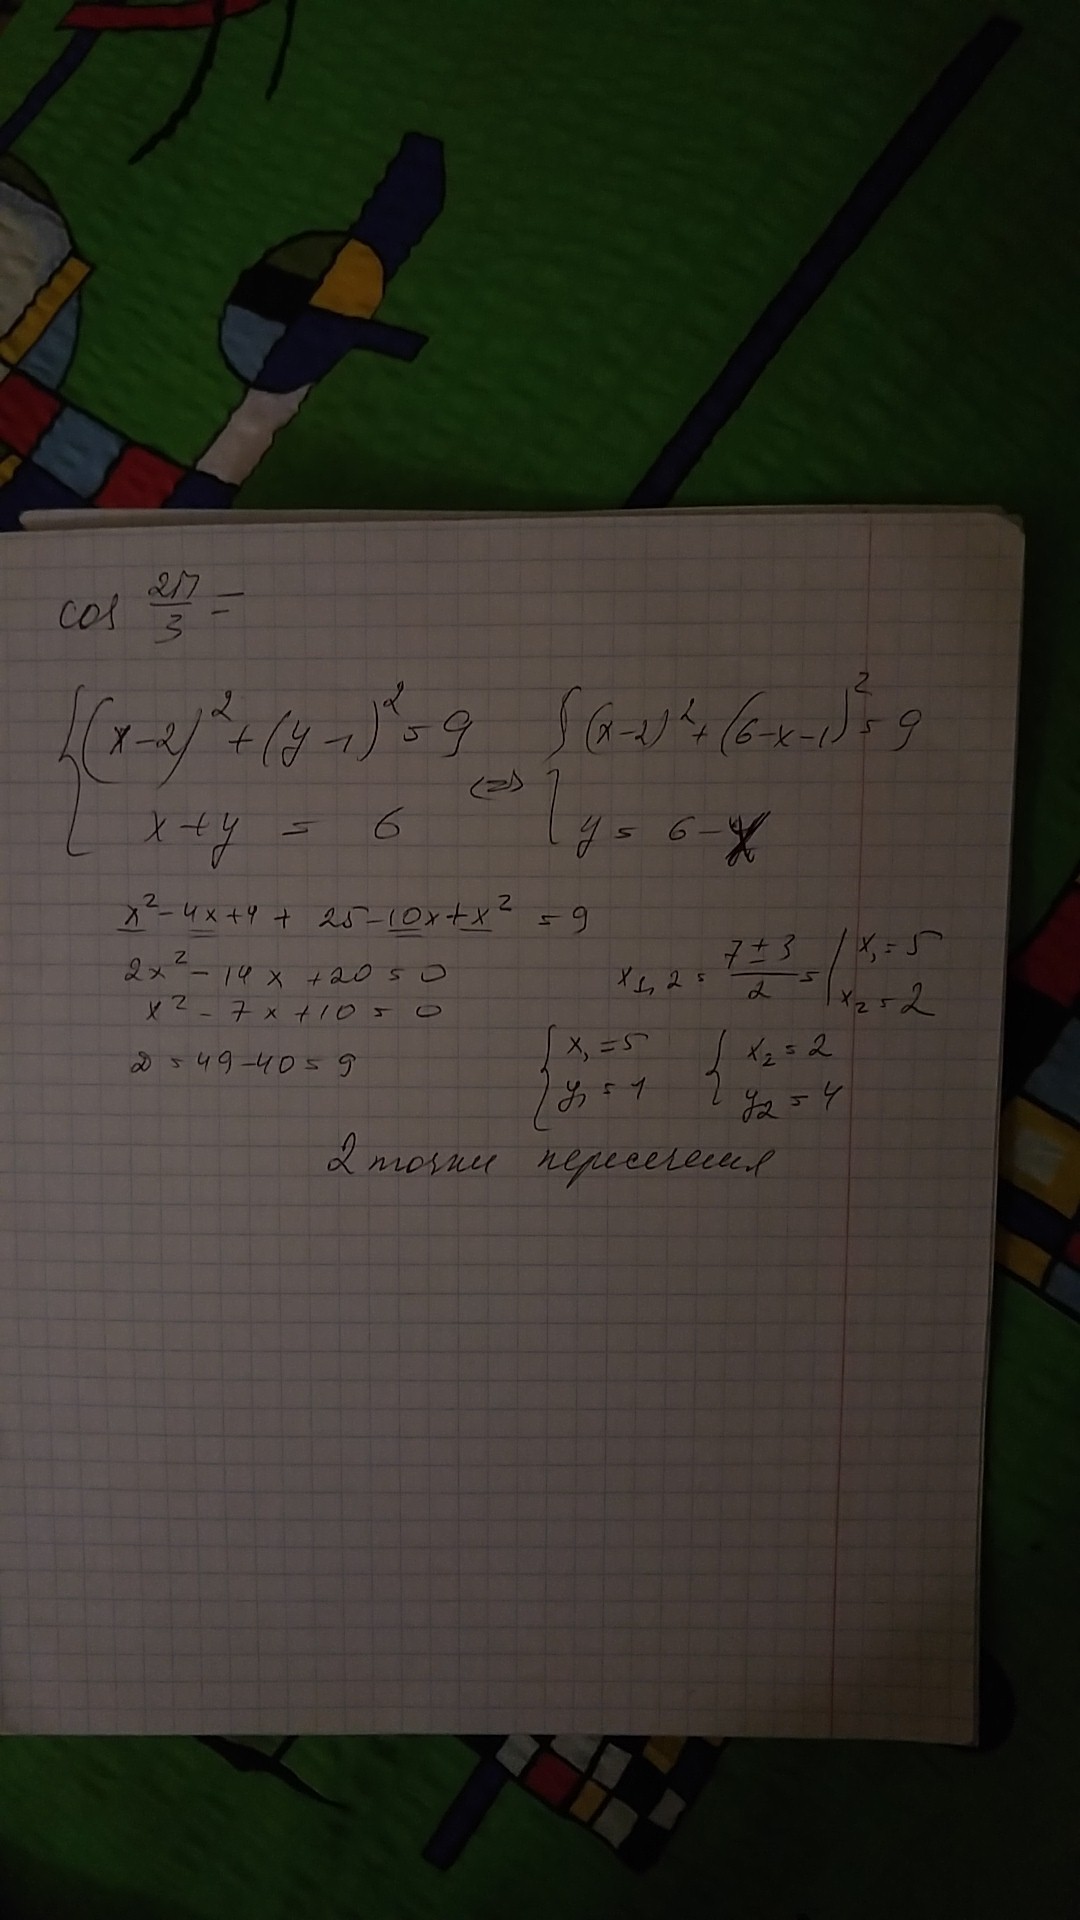 cos 2π/3 =
{ (x-2)² + (y-1)² = 9 <=> { (x-2)² + (6-x-1)² = 9
x + y = 6 y = 6 - x
x² - 4x + 4 + 25 - 10x + x² = 9
2x² - 14x + 20 = 0
x² - 7x + 10 = 0
D = 49 - 40 = 9
x1,2 = (7 ± 3)/2 = | x₁ = 5
x₂ = 2
{ x₁ = 5 { x₂ = 2
y₁ = 1 y₂ = 4
2 точки пересечения